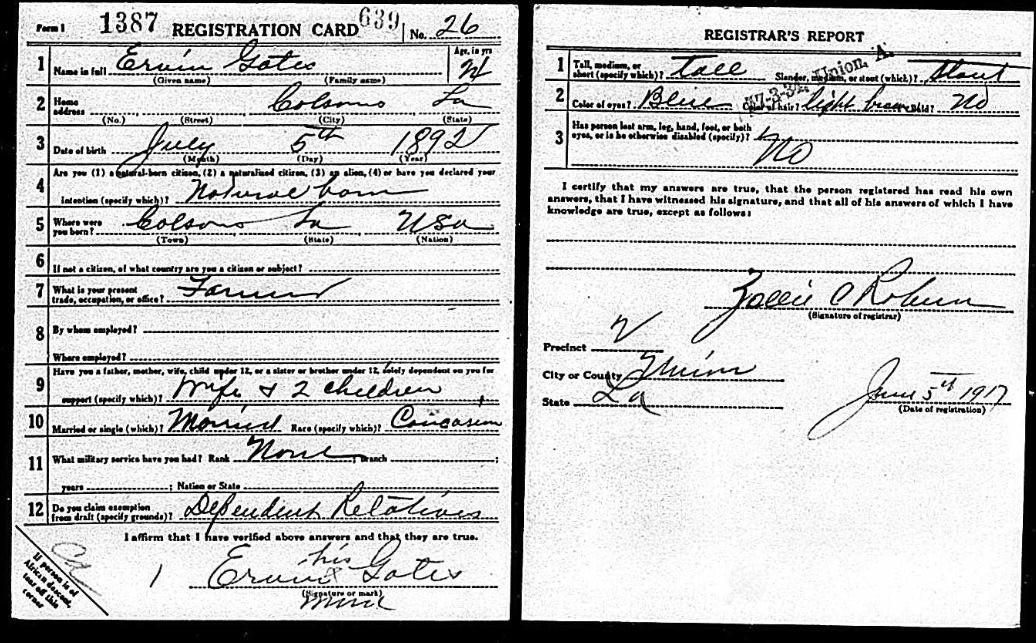 Form 1 1387 REGISTRATION CARD 639 No. 26
1 Name in full Ervin Gates Age, in yrs 24
(Given name) (Family name)
2 Home address Colsons La
(No.) (Street) (City) (State)
3 Date of birth July 5th 1892
(Month) (Day) (Year)
4 Are you (1) a natural-born citizen, (2) a naturalized citizen, (3) an alien, (4) or have you declared your
intention (specify which)? Natural born
5 Where were you born? Colsons La USa
(Town) (State) (Nation)
6 If not a citizen, of what country are you a citizen or subject?
7 What is your present trade, occupation, or office? Farmer
8 By whom employed?
Where employed?
9 Have you a father, mother, wife, child under 12, or a sister or brother under 12, solely dependent on you for
support (specify which)? Wife & 2 children
10 Married or single (which)? Married Race (specify which)? Caucasian
11 What military service have you had? Rank None ; branch ;
years ; Nation or State
12 Do you claim exemption from draft (specify grounds)? Dependent Relatives
I affirm that I have verified above answers and that they are true.
his
Ervin x Gates
(Signature or mark)
mark
If person is of African descent, tear off this corner
REGISTRAR'S REPORT
1 Tall, medium, or short (specify which)? tall Slender, medium, or stout (which)? Stout
2 Color of eyes? Blue Color of hair? light brown Bald? No
3 Has person lost arm, leg, hand, foot, or both
eyes, or is he otherwise disabled (specify)? No
I certify that my answers are true, that the person registered has read his own
answers, that I have witnessed his signature, and that all of his answers of which I have
knowledge are true, except as follows:
(Signature of registrar)
Precinct
City or County Union
State La
June 5th 1917
(Date of registration)